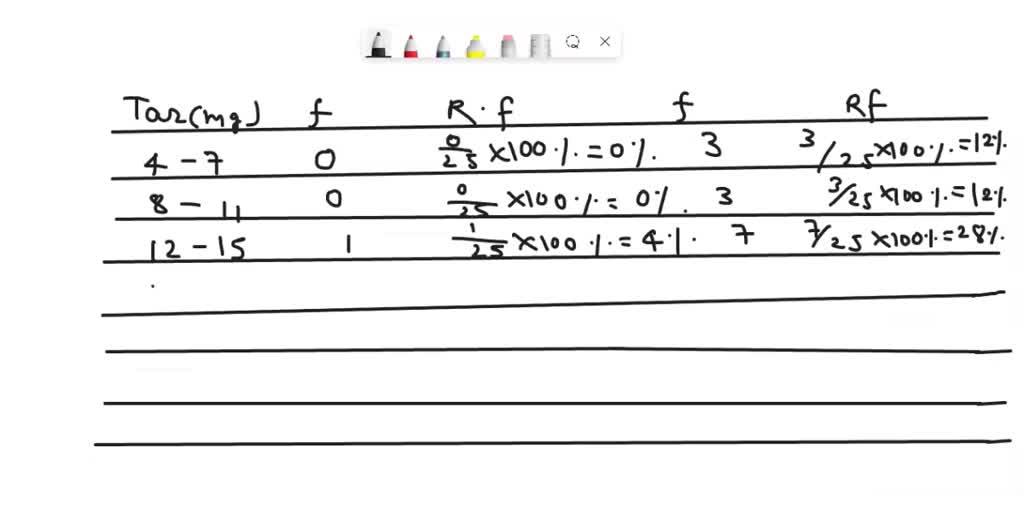 Tar(mg) f R.f f Rf
4-7 0 0/25 ×100.%.=0%. 3 3/25×100%.=12%.
8-11 0 0/25 ×100.%.= 0%. 3 3/25 ×100%.=12%.
12-15 1 1/25 ×100%.=4%. 7 7/25 ×100%.=28%.